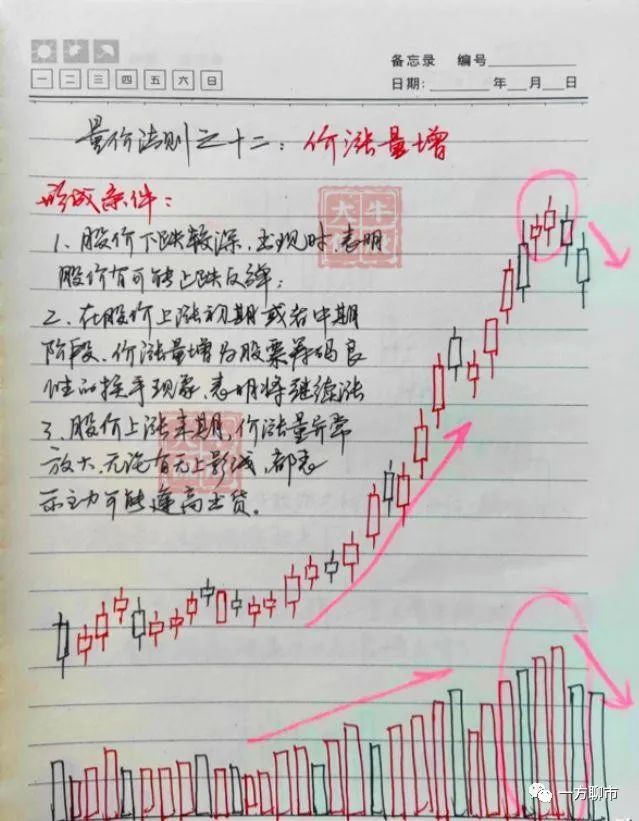 备忘录 编号
一 二 三 四 五 六 日
日期: 年 月 日
量价法则之十二：价涨量增
形成条件：
1、股价下跌较深，出现时，表明
股价有可能止跌反弹；
2、在股价上涨初期或者中期
阶段，价涨量增为股票筹码良
性的换手现象，表明将继续涨
3、股价上涨末期，价涨量异常
放大，无论有无上影线，都表
示主力可能逢高出货。
大牛
一方聊市